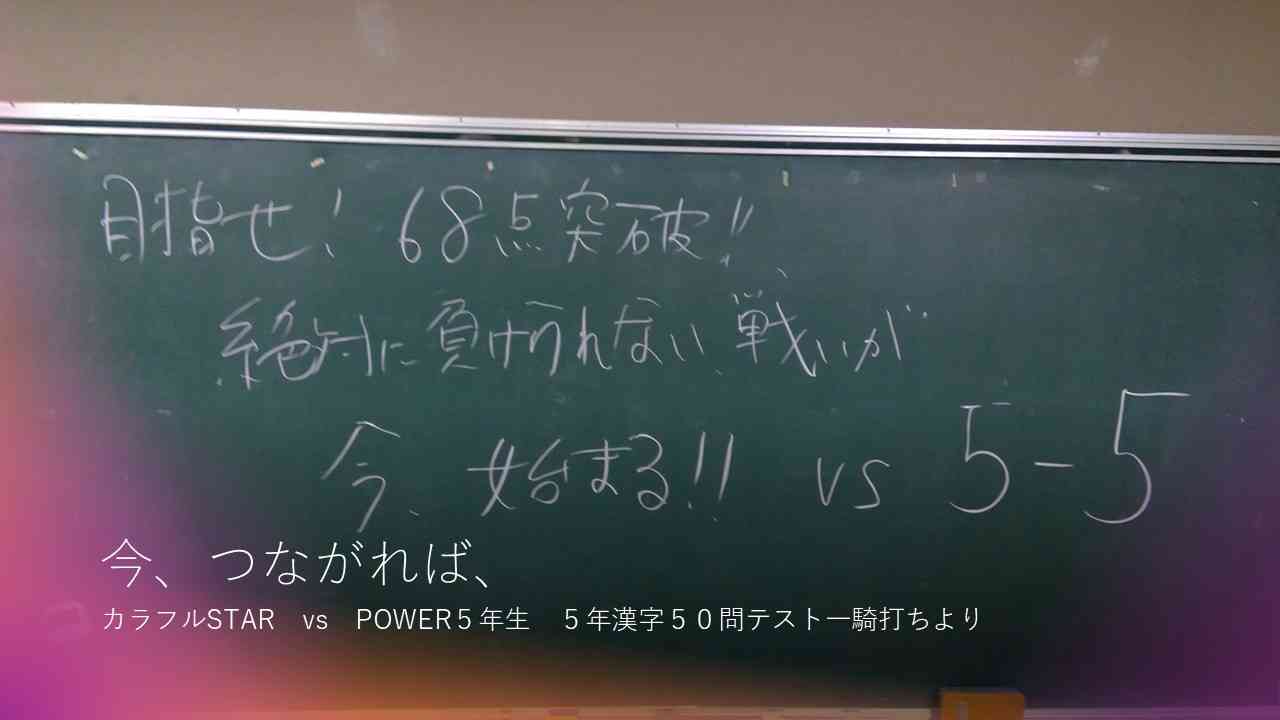 目指せ! 68点突破!!
絶対に負けられない戦いが
今、始まる!! vs 5-5
今、つながれば、
カラフルSTAR　vs　POWER５年生　５年漢字５０問テスト一騎打ちより